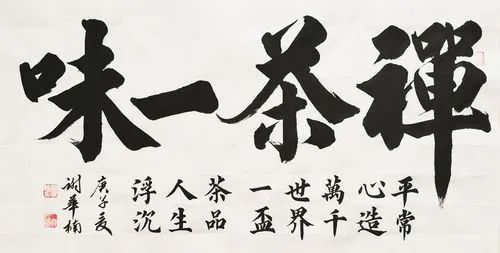 禪茶一味
平常
心造
萬千
世界
一盃
茶品
人生
浮沉
庚子夏
谢華楠